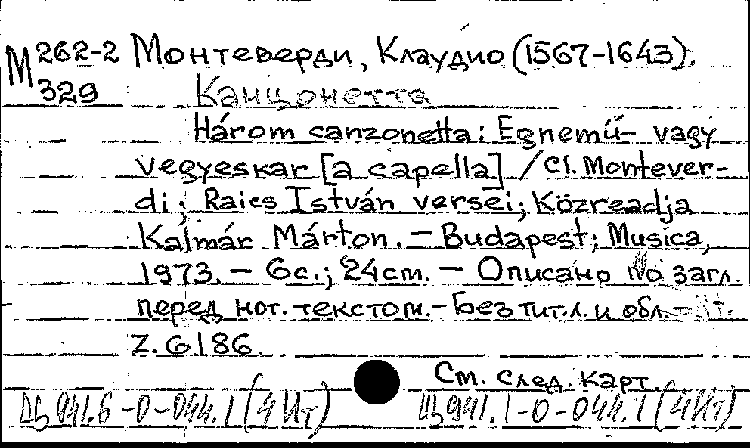 М 262-2 Монтеверди, Клаудио (1567-1643).
329 Канцонетта
Három canzonetta: Egnemű- vagy
vegyeskar [a capella] / Cl. Montever-
di; Raics István versei; Közreadja
Kalmár Márton. - Budapest: Musica,
1973. - 6c.; 24cm. - Описано по загл.
перед нот. текстом. - Без тит. л. и обл. -
Z. 6186.
См. след. карт.
Щ 941.1-0-044.1 (4Ит)